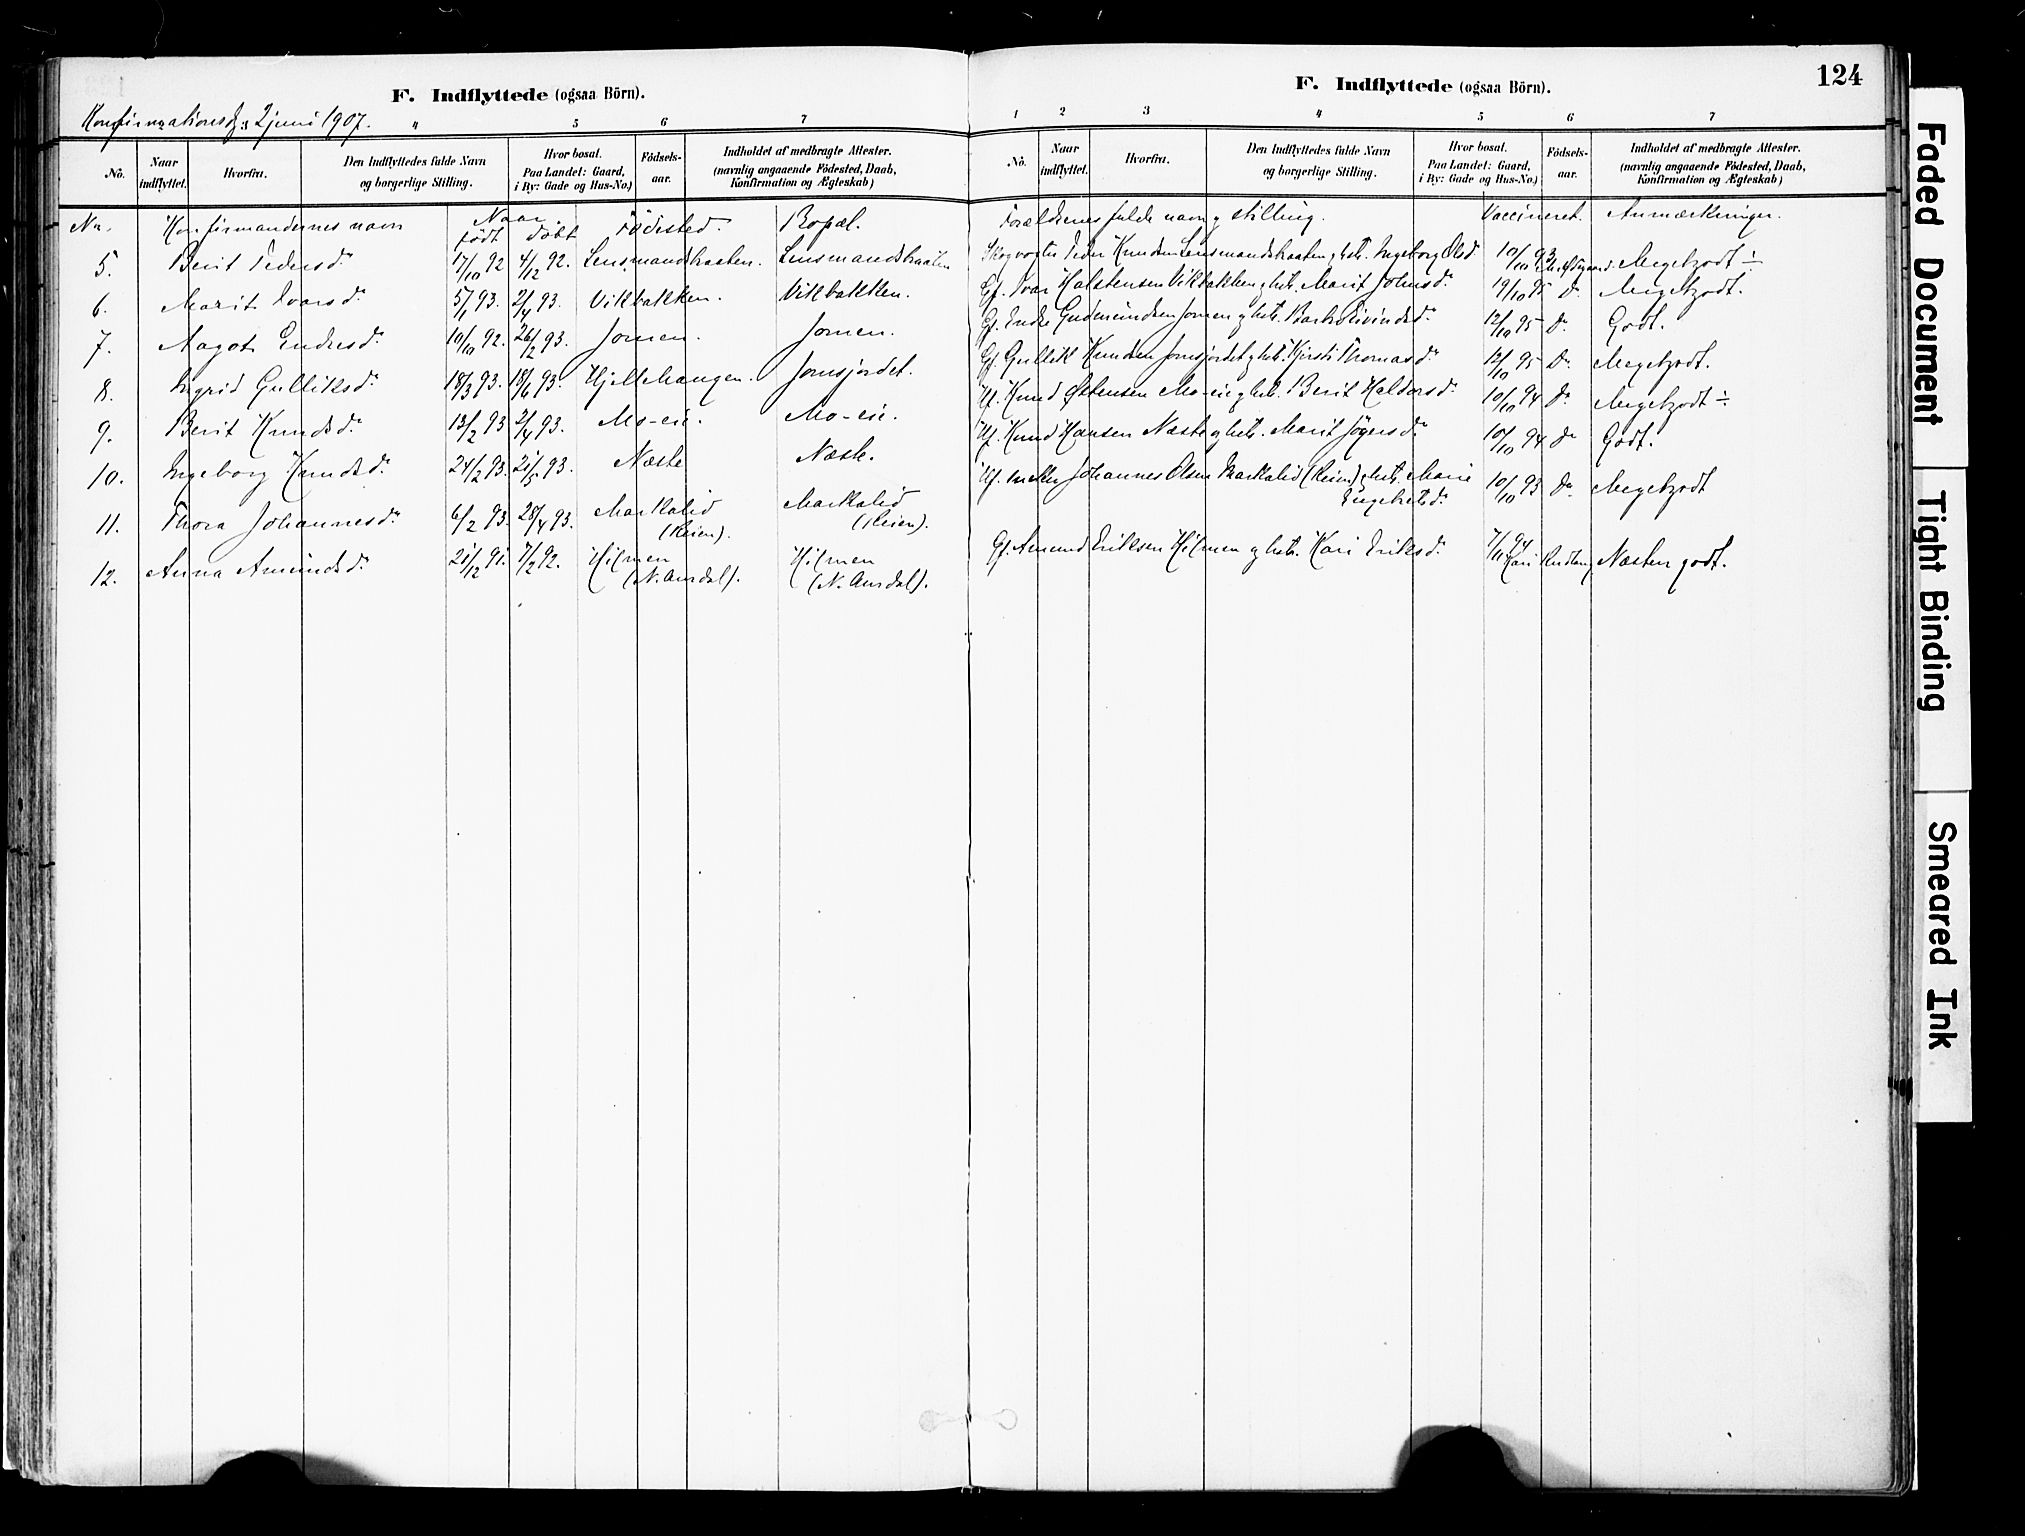 F. Indflyttede (ogsaa Börn).
Konfirmationsdg: 2 juni 1907.
4 5 6 7
No. Naar indflyttet. Hvorfra. Den Indflyttedes fulde Navn og borgerlige Stilling. Hvor bosat. Paa Landet: Gaard, i By: Gade og Hus-No.) Födsels-aar. Indholdet af medbragte Attester. (navnlig angaaende Födested, Daab, Konfirmation og Ægteskab)
No. Konfirmandernes navn Naar født døbt Fødested. Bopæl.
5. Berit Pedersd. 17/10 92 4/12 92. Lensmandsbraaten. Lensmandsbraaten
6. Marit Ivarsd. 5/1 93. 2/4 93. Vikbakken. Vikbakken.
7. Aagot Endresd. 10/10 92. 26/2 93. Jomen. Jomen.
8. Ingrid Gulliksd. 18/3 93. 18/6 93. Hjellehaugen. Jomsjordet.
9. Berit Knudsd. 13/2 93 2/4 93. Mo-eie. Mo-eie.
10. Ingeborg Knudsd. 24/2 93. 21/5 93. Næste Næste.
11. Thora Johannesd. 6/2 93. 28/4 93. Markalid (Reien). Markalid (Reien).
12. Anna Amundsd. 21/12 91. 7/2 92. Hilmen (N. Aurdal). Hilmen (N. Aurdal).
F. Indflyttede (ogsaa Börn).
124
1 2 3 4 5 6 7
No. Naar indflyttet. Hvorfra. Den Indflyttedes fulde Navn og borgerlige Stilling. Hvor bosat. Paa Landet: Gaard, i By: Gade og Hus-No.) Födsels-aar. Indholdet af medbragte Attester. (navnlig angaaende Födested, Daab, Konfirmation og Ægteskab)
Forældrenes fulde navn og stilling. Vaccineret. Anmærkninger.
Skogvogter Peder Knudsen Lensmandsbraaten g hst. Ingeborg Olsd 10/10 93 Megetgodt ÷
Gf. Ivar Halstensen Vikbakken g hst. Marit Johnsd. 19/10 95 Do. Megetgodt.
Gf. Endre Gudmundsen Jomen g hst. Barbo Eivindsd. 12/10 95 Do. Godt.
Gf. Gullik Knudsen Jomsjordet g hst. Kjersti Thomasd. 12/10 95 Do. Megetgodt.
Hf. Knud Østensen Mo-eie g hst. Berit Haldorsd. 10/10 94 Do. Megetgodt ÷
Hf. Knud Hansen Næste g hst. Marit Jøgersd. 10/10 94 Do Godt.
Hf. Johannes Olsen Markalid (Reien) g hst. Marie Engebretsd. 10/10 93 Do. Megetgodt
Gf. Amund Eriksen Hilmen g hst. Kari Eriksd. 7/11 94 Kari Næsten godt.
Faded Document
Tight Binding
Smeared Ink